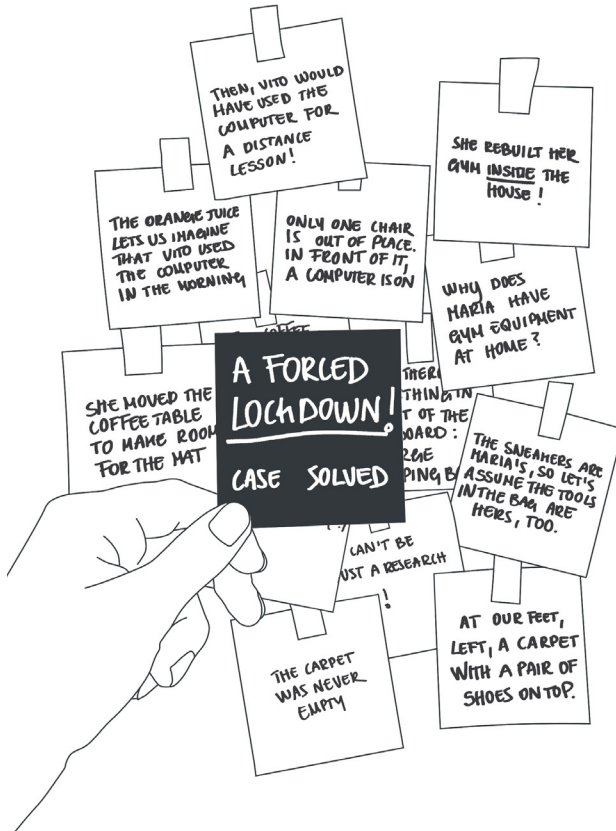 THEN, VITO WOULD
HAVE USED THE
COMPUTER FOR
A DISTANCE
LESSON!
SHE REBUILT HER
GYM INSIDE THE
HOUSE!
THE ORANGE JUICE
LETS US IMAGINE
THAT VITO USED
THE COMPUTER
IN THE MORNING
ONLY ONE CHAIR
IS OUT OF PLACE.
IN FRONT OF IT,
A COMPUTER IS ON
WHY DOES
MARIA HAVE
GYM EQUIPMENT
AT HOME?
COFFEE
SHE MOVED THE
COFFEE TABLE
TO MAKE ROOM
FOR THE MAT
A FORCED
LOCKDOWN!
CASE SOLVED
THERE
THING IN
T OF THE
OARD:
RGE
PING B
THE SNEAKERS ARE
MARIA'S, SO LET'S
ASSUME THE TOOLS
IN THE BAG ARE
HERS, TOO.
CAN'T BE
UST A RESEARCH
!
AT OUR FEET,
LEFT, A CARPET
WITH A PAIR OF
SHOES ON TOP.
THE CARPET
WAS NEVER
EMPTY